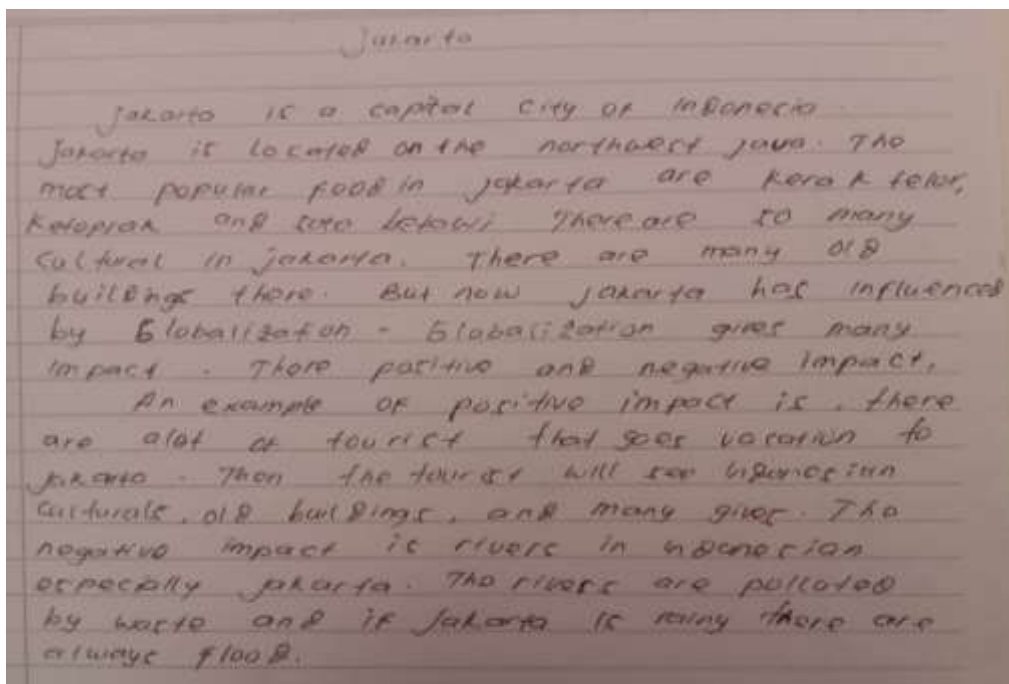 Jakarta
Jakarta is a capital city of Indonesia.
Jakarta is located on the northwest java. The
most popular food in jakarta are kerak telor,
ketoprak and soto betawi There are so many
cultural in jakarta. There are many old
buildings there. But now jakarta has influenced
by Globalization - Globalization gives many
impact. There positive and negative impact,
An example of positive impact is, there
are alot of tourist that goes vacation to
jakarta. Then the tourist will see indonesian
culturals, old buildings, and many. The
negative impact is rivers in indonesian
especially jakarta. The rivers are polluted
by waste and if jakarta is rainy there are
always flood.